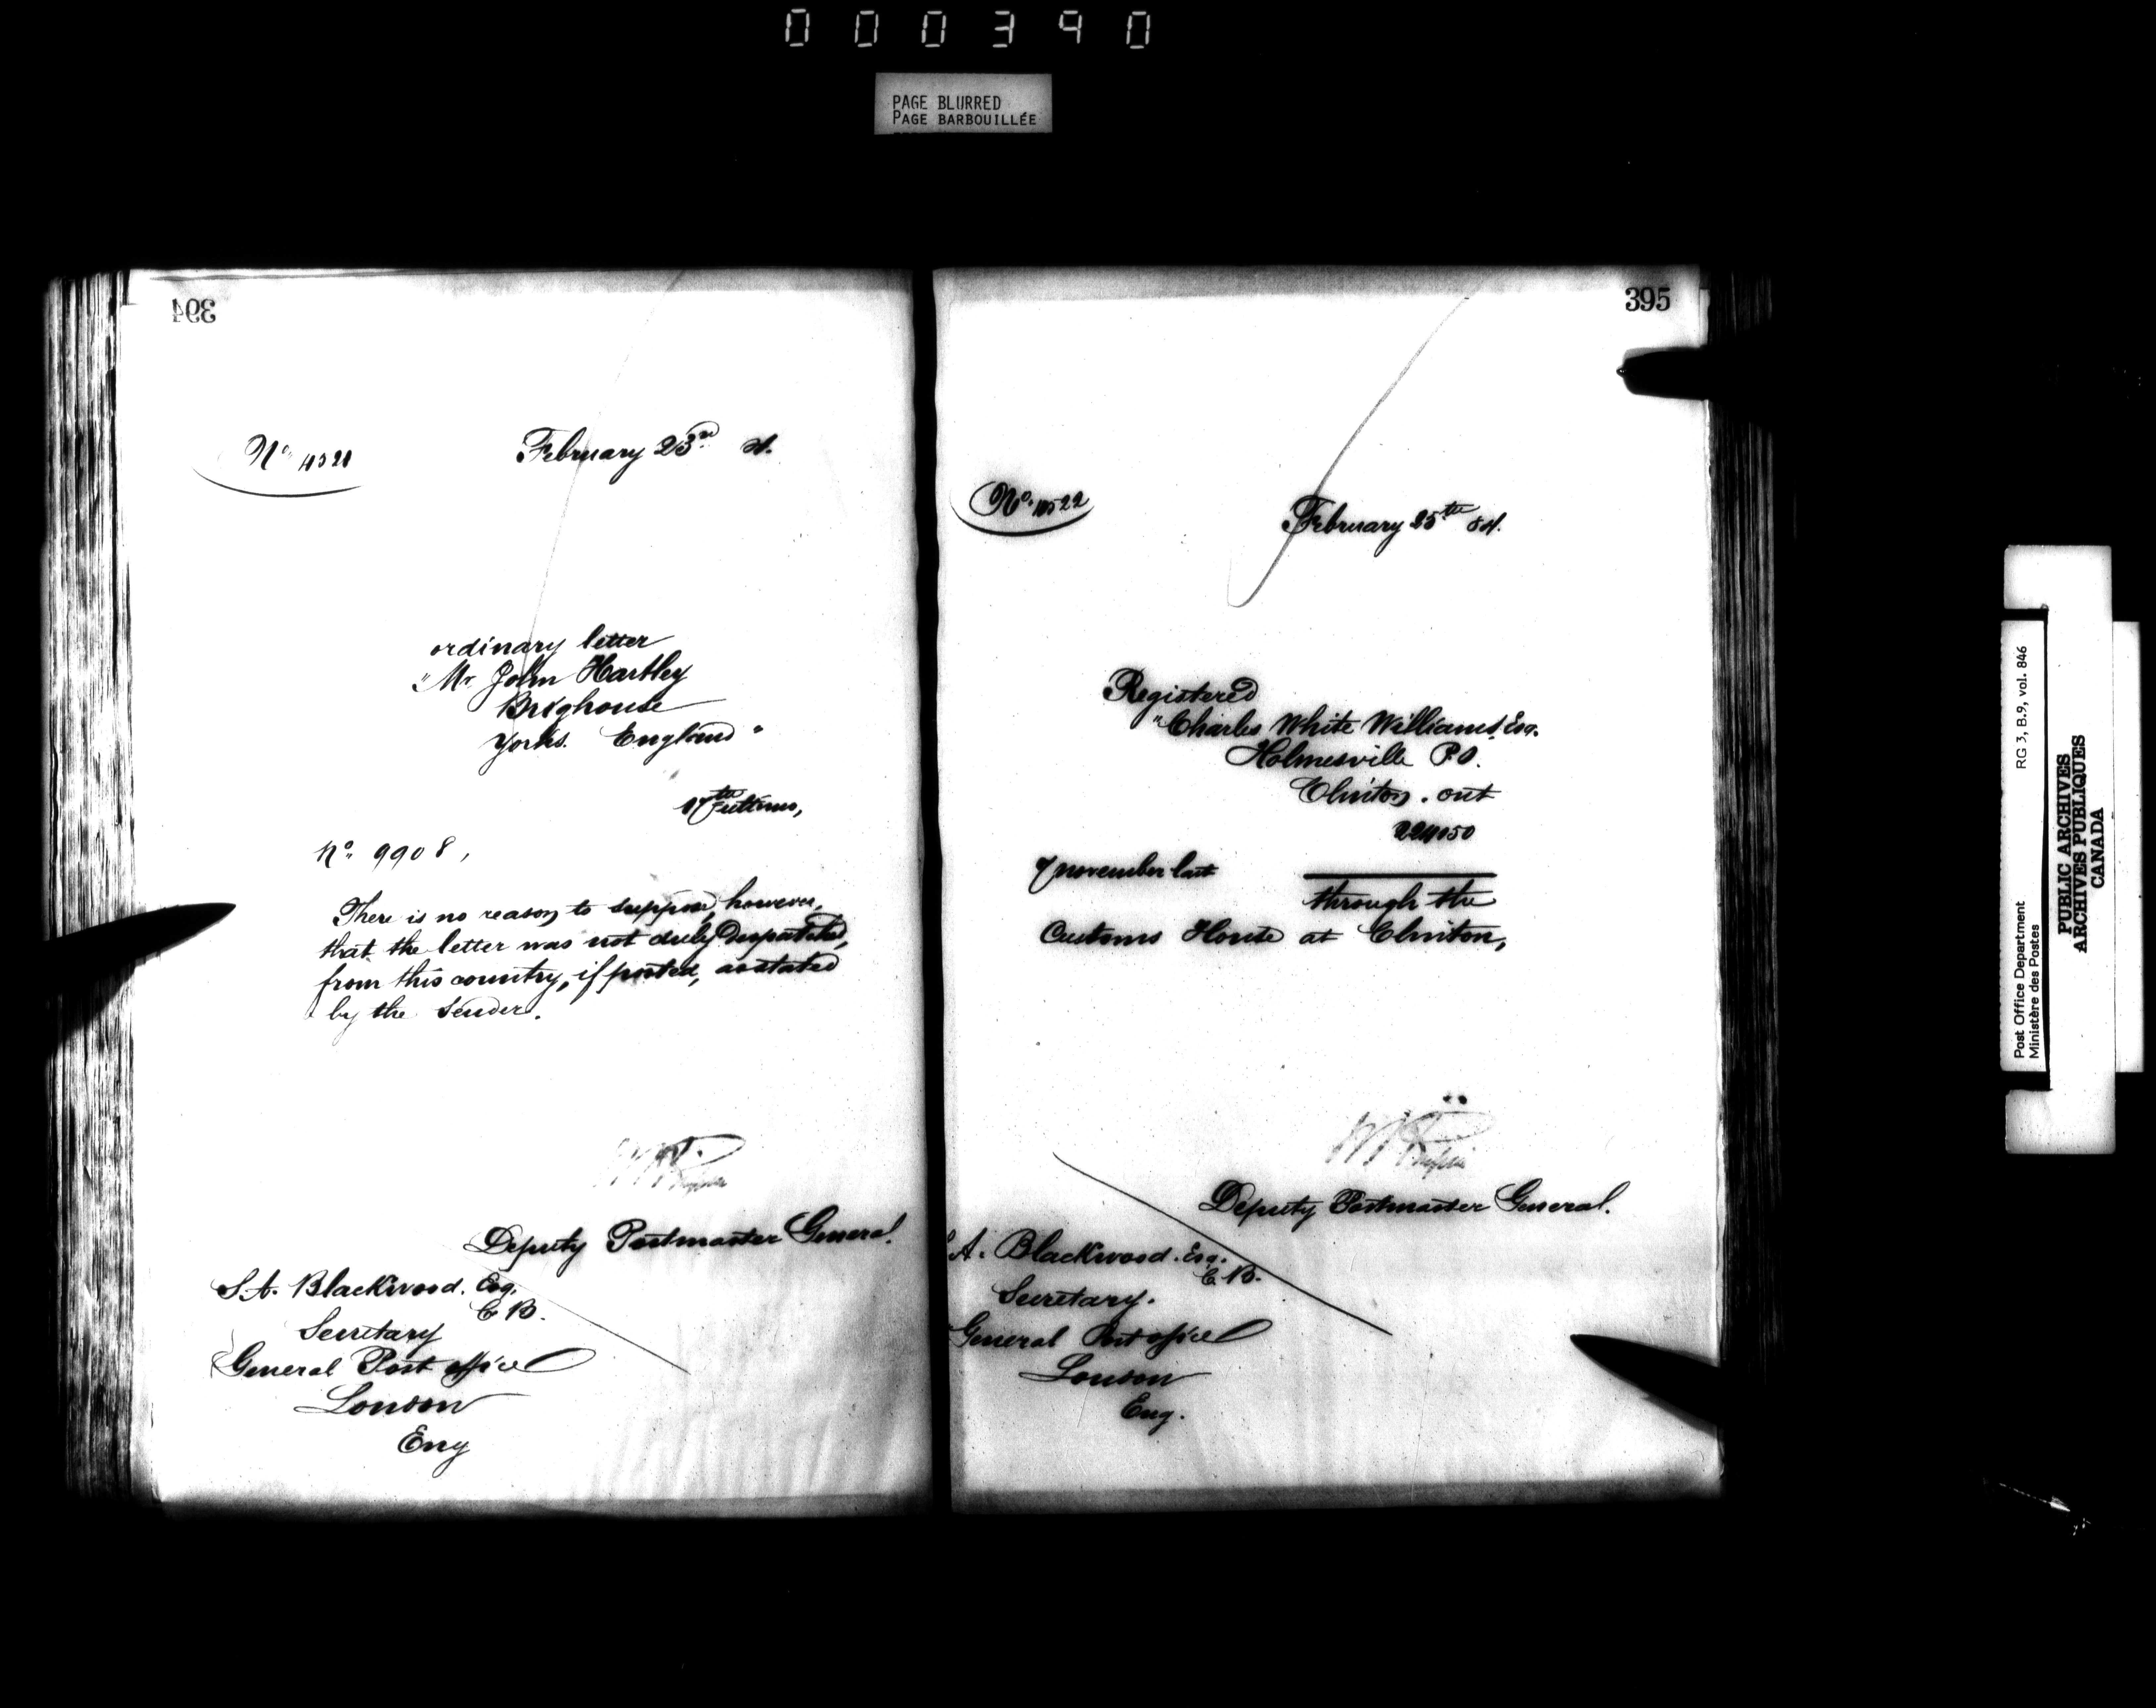 000390
PAGE BLURRED
PAGE BARBOUILLÉE
394
No. 4521
February 23rd 84.
ordinary letter
"Mr. John Hartley
Brighouse
Yorks. England"
17th ultimo,
No. 9908,
There is no reason to suppose, however,
that the letter was not duly despatched,
from this country, if posted, as stated
by the sender.
Deputy Postmaster General.
S.A. Blackwood. Esq.
C.B.
Secretary
General Post office
London
Eng
395
No. 4522
February 25th 84.
Registered
"Charles White Williams, Esq.
Holmesville P.O.
Clinton. Ont
224050
7 November last
through the
Customs House at Clinton,
Deputy Postmaster General.
S.A. Blackwood. Esq.
C.B.
Secretary.
General Post office
London
Eng.
Post Office Department
Ministère des Postes
RG 3, B.9, vol. 846
PUBLIC ARCHIVES
ARCHIVES PUBLIQUES
CANADA